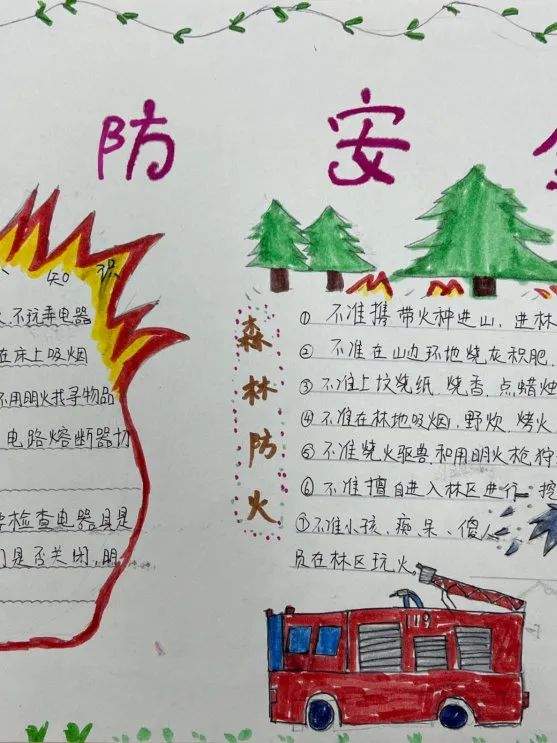 防 安
知 识
不玩弄电器
在床上吸烟
不用明火找寻物品
电路熔断器切
检查电器具是
是否关闭,明
森林防火
① 不准携带火种进山、进林
② 不准在山边环地烧灰积肥.
③ 不准上坟烧纸、烧香、点蜡烛
④ 不准在林地吸烟、野炊、烤火
⑤ 不准烧火驱兽和用明火枪狩
⑥ 不准擅自进入林区进行 挖
⑦ 不准小孩、痴、呆、傻
员在林区玩火。
119